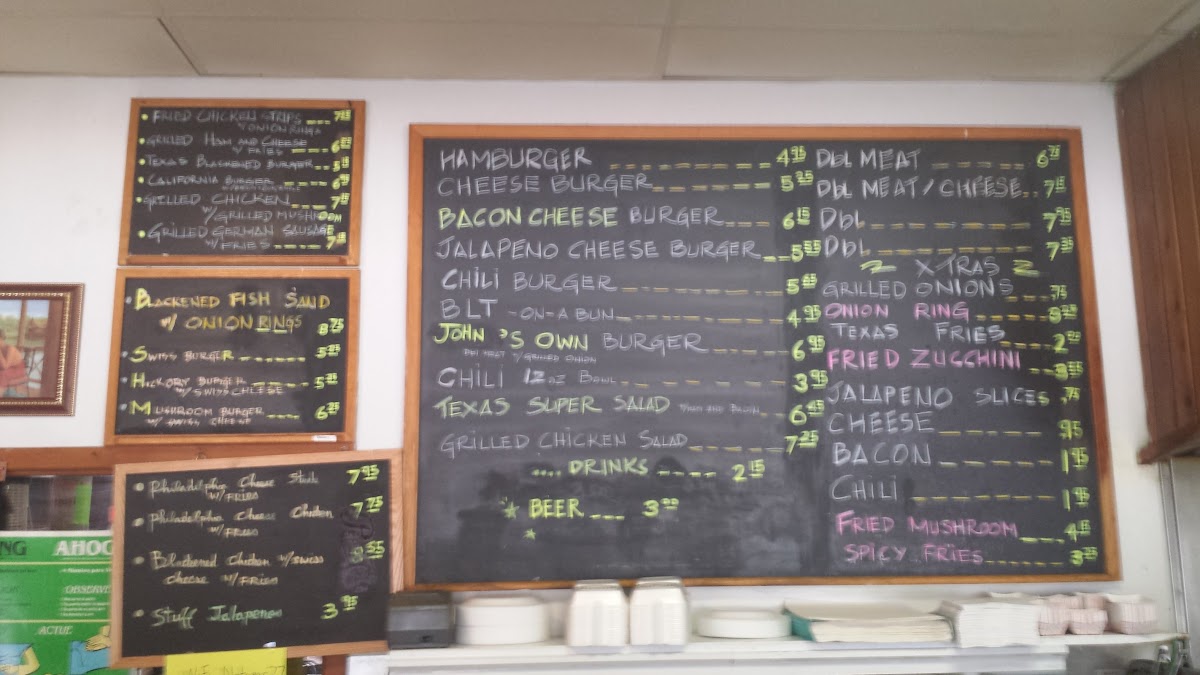 • FRIED CHICKEN STRIPS ---
W/ ONION RINGS
• GRILLED HAM AND CHEESE
W/ FRIES ----
• TEXAS BLACKENED BURGER --
• CALIFORNIA BURGER ----
• GRILLED CHICKEN ----
W/ GRILLED MUSHROOM
• GRILLED GERMAN SAUSAGE
W/ FRIES ----
• BLACKENED FISH SAND
W/ ONION RINGS 8.75
• SWISS BURGER ------ 5.25
• HICKORY BURGER ----- 5.25
W/ SWISS CHEESE
• MUSHROOM BURGER ---- 6.25
W/ SWISS CHEESE
• Philadelphia Cheese Steak 7.95
W/ FRIES
• Philadelphia Cheese Chicken 7.75
W/ FRIES
• Blackened Chicken W/ SWISS
Cheese W/ FRIES
• Stuff Jalapenos 3.95
HAMBURGER --------- 4.95
CHEESE BURGER ------- 5.25
BACON CHEESE BURGER ---- 6.15
JALAPENO CHEESE BURGER --
CHILI BURGER --------
BLT -ON-A BUN ------- 4.95
JOHN'S OWN BURGER ----- 6.95
W/ GRILLED ONION
CHILI 12 oz BOWL ------- 3.95
TEXAS SUPER SALAD -- 6.45
GRILLED CHICKEN SALAD ----- 7.25
.... DRINKS ---- 2.15
BEER --- 3.00
Dbl MEAT ----- 6.75
Dbl MEAT / CHEESE..
Dbl -------- 7.95
Dbl -------- 7.25
X-TRAS
GRILLED ONIONS --- .75
ONION RING ----
TEXAS FRIES ---
FRIED ZUCCHINI --
JALAPENO SLICES .75
CHEESE ------ .95
BACON ------ 1.95
CHILI ------ 1.95
FRIED MUSHROOM ---
SPICY FRIES ----- 3.25
NG AHOG
OBSERVE
ACTUE